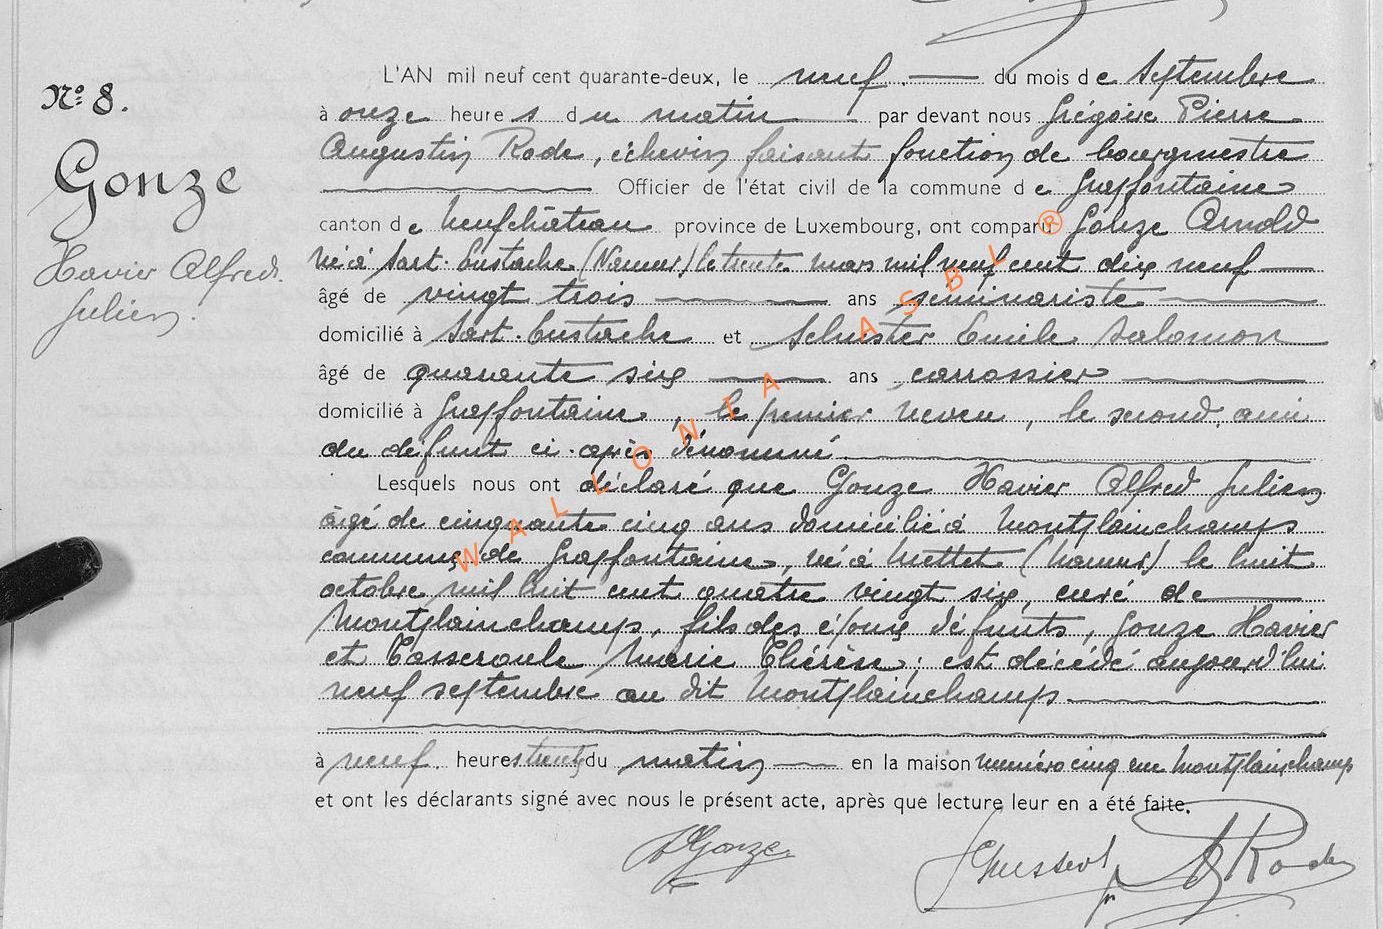 Nº 8.
Gonze
Xavier Alfred
Julien.
L'AN mil neuf cent quarante-deux, le neuf du mois de septembre
à onze heures du matin par devant nous Grégoire Pierre
Augustin Rode, échevin faisant fonction de bourgmestre
Officier de l'état civil de la commune de Graffontaine
canton de Neufchâteau province de Luxembourg, ont comparu Gonze Arnold
né à Sart-Eustache (Namur) le trente mars mil neuf cent dix neuf
âgé de vingt trois ans séminariste
domicilié à Sart-Eustache et Schuster Emile Salomon
âgé de quarante six ans carrossier
domicilié à Graffontaine, le premier neveu, le second, ami
du défunt ci-après dénommé
Lesquels nous ont déclaré que Gonze Xavier Alfred Julien
âgé de cinquante cinq ans domicilié à Montplainchamps
commune de Graffontaine, né à Mettet (Namur) le huit
octobre mil huit cent quatre vingt six, curé de
Montplainchamps, fils des époux défunts, Gonze Xavier
et Tasseroule Marie Thérèse; est décédé aujourd'hui
neuf septembre au dit Montplainchamps
à neuf heures trente du matin en la maison numéro cinq en Montplainchamp
et ont les déclarants signé avec nous le présent acte, après que lecture leur en a été faite.
A Gonze
Rode
WALLONFA ASBL ®